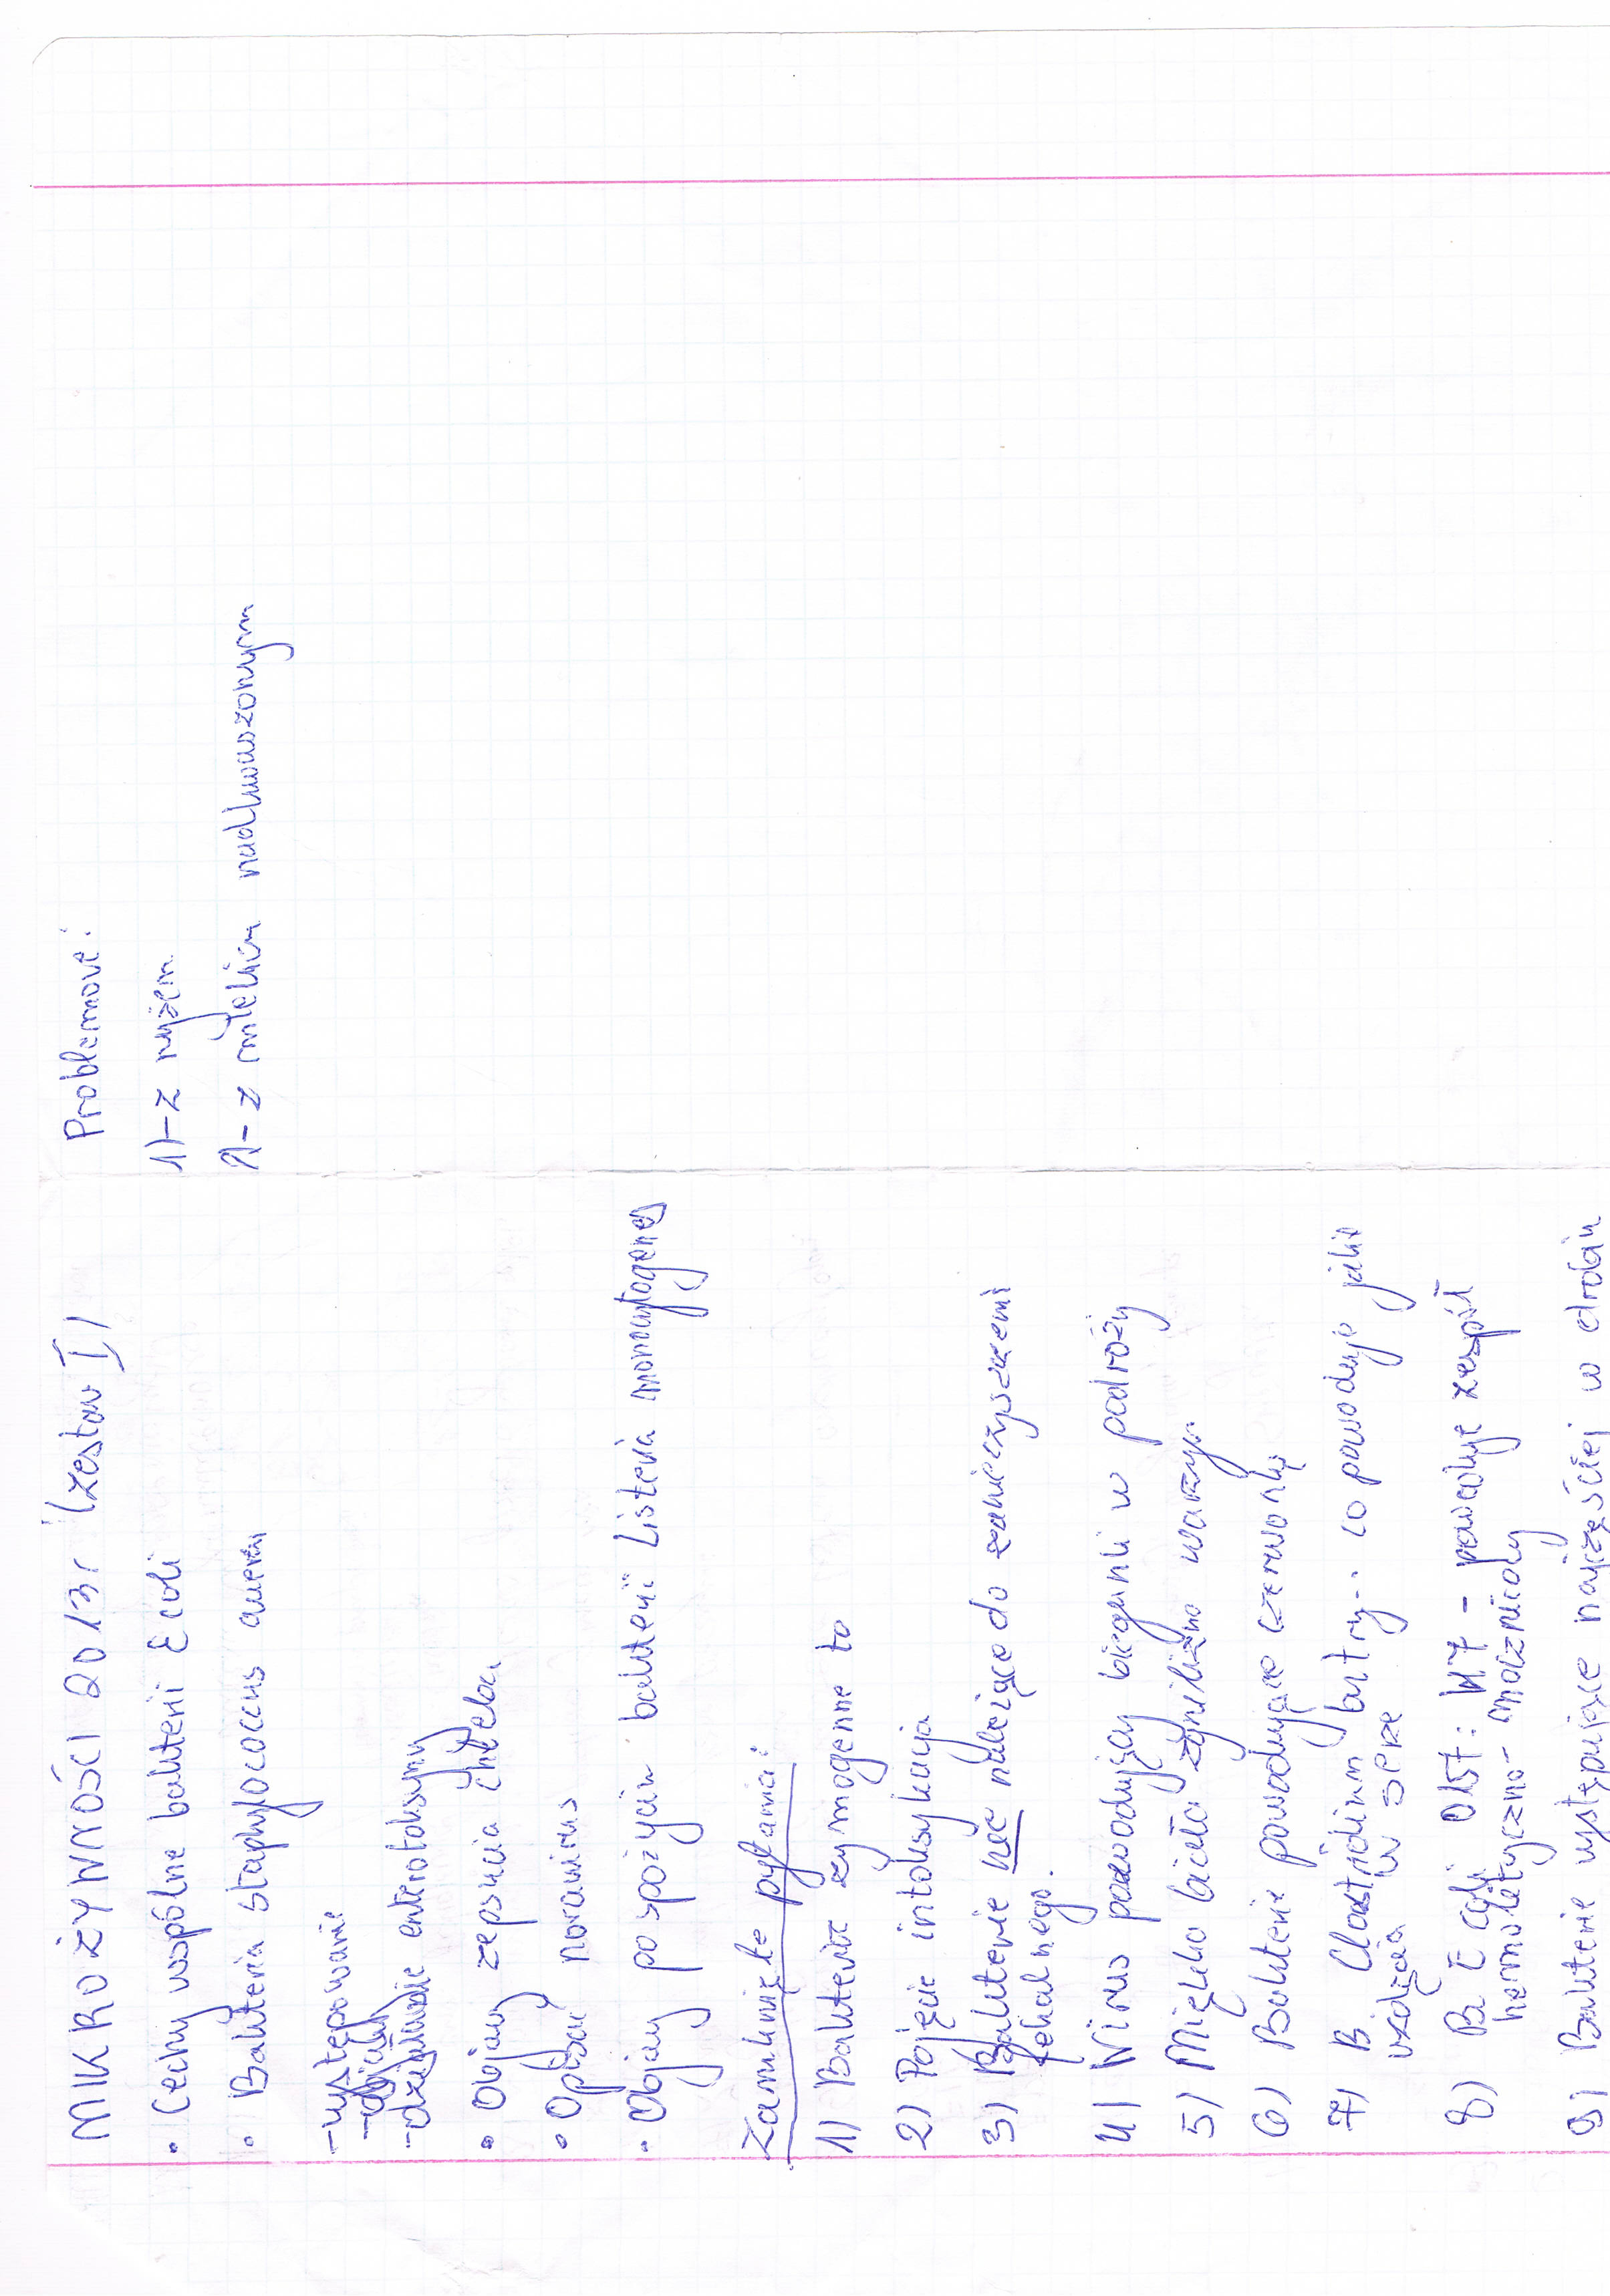 MIKROŻYWNOŚCI 2013r (zestaw I)
• Cechy wspólne bakterii E coli
• Bakteria staphylococcus aureus
- występowanie
- objawy
- działanie enterotoksyny
• Objawy zepsucia chleba
• Opisać norawirus
• Objawy po spożyciu bakterii Listeria monocytogenes
Zamknięte pytania:
1) Bakterie zymogenne to
2) Pojęcie intoksykacja
3) Bakterie nie należące do zanieczyszczeni
fekalnego.
4) Wirus powodujący biegunki w podróży
5) Mięsko bicata zgnilizno warzyw
6) Bakterie powodujące czerwonkę
7) B Clostridium butry... co powoduje jakie
wzdęcia w serze
8) B. E coli O157:H7 - powoduje zespół
hemolityczno-mocznicowy
9) Bakterie występujące najczęściej w drobiu
Problemowe:
1) - z ryżem
2) - z mlekiem nadkwaszonym